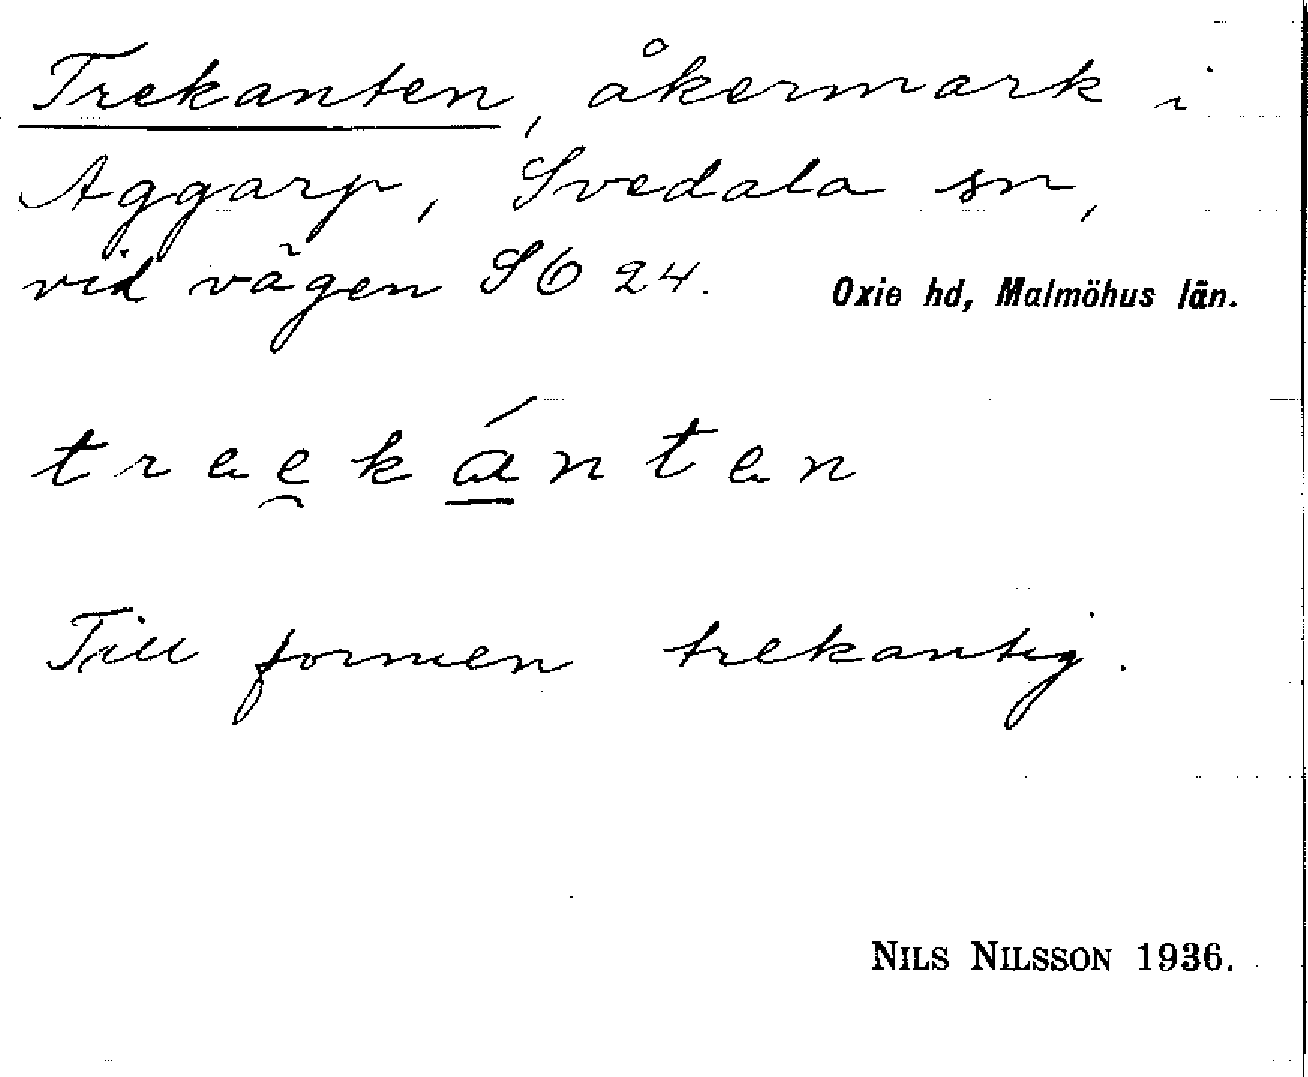 Trekanten, åkermark i
Aggarp, Svedala sn,
vid vägen SO 24. Oxie hd, Malmöhus län.
tree̯kántan
Till formen trekantig.
NILS NILSSON 1936.